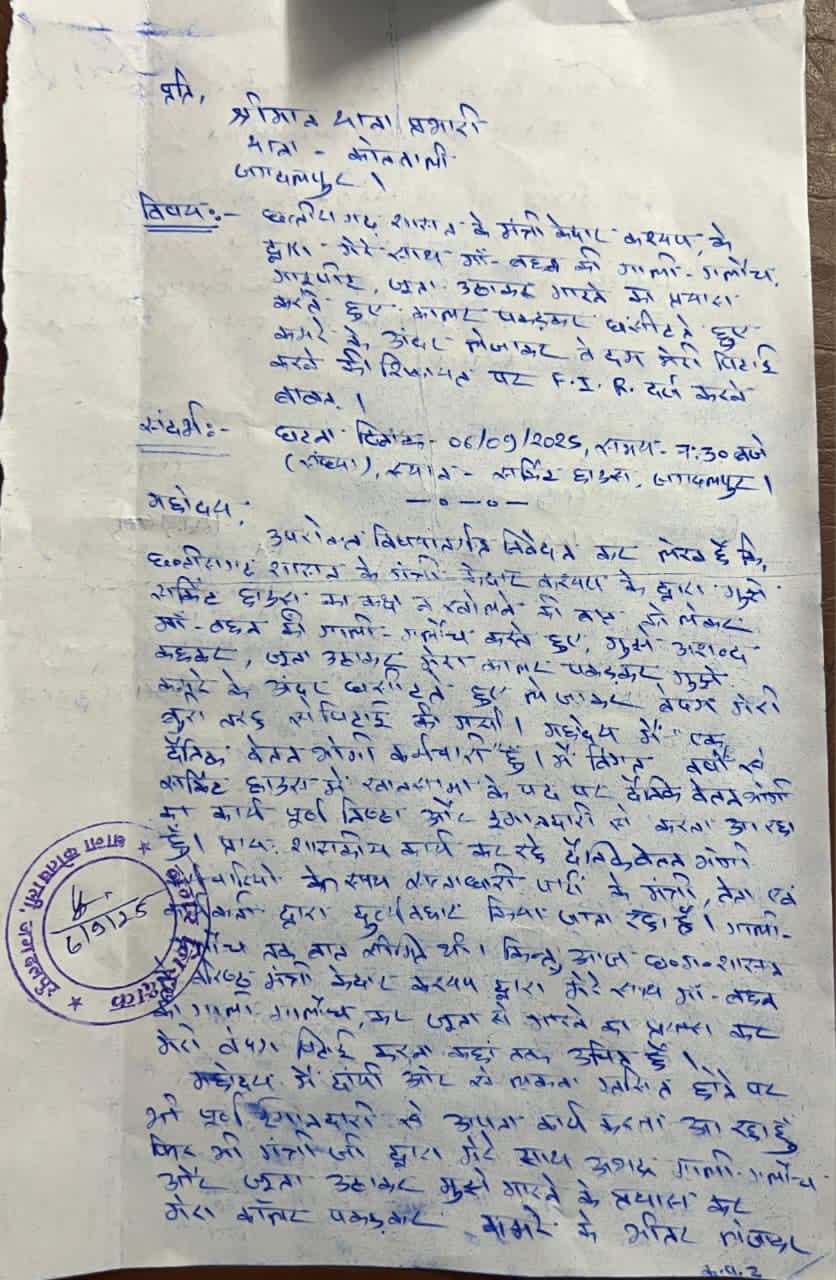 प्रति,
श्रीमान थाना प्रभारी
थाना - कोतवाली
जगदलपुर ।
विषय:- छत्तीसगढ़ शासन के मंत्री केदार कश्यप, के
द्वारा मेरे साथ माँ-बहन की गाली-गलौच,
मारपीट, जुता उठाकर मारने का प्रयास
करते हुए कालर पकड़कर घसीटते हुए
कमरे के अंदर लेजाकर बेदम मेरी पिटाई
करने की शिकायत पर F.I.R. दर्ज करने
बाबत् ।
संदर्भ:- घटना दिनांक- 06/09/2025, समय- 7:30 बजे
(संध्या), स्थान - सर्किट हाउस, जगदलपुर ।
—०—०—
महोदय,
उपरोक्त विषयान्तर्गत निवेदन कर लेख है कि,
छत्तीसगढ़ शासन के मंत्री केदार कश्यप के द्वारा मुझे
सर्किट हाउस का कक्ष न खोलने की बात को लेकर
माँ-बहन की गाली-गलौच करते हुए, मुझे
कहकर, जुता उठाकर मेरा कालर पकड़कर मुझे
कमरे के अंदर घसीटते हुए ले जाकर बेदम मेरी
बुरी तरह से पिटाई की गयी । महोदय मैं एक
दैनिक वेतन भोगी कर्मचारी हूँ । मैं विगत वर्षो से
सर्किट हाउस में खानसामा के पद पर दैनिक वेतन भोगी
का कार्य पूर्ण निष्ठा और इमानदारी से करता आ रहा
हूँ । प्रायः शासकीय कार्य कर रहे दैनिक वेतन भोगी
के साथ सत्ताधारी पार्टी के मंत्री, नेता एवं
द्वारा दुर्व्यवहार किया जाता रहा है । गाली-
तक बात सीमित थी । किन्तु, आज छ०ग० शासन
मंत्री केदार कश्यप द्वारा मेरे साथ माँ-बहन
की गाली गलौच, कर जुता से मारने का प्रयास कर
मेरी बेदम पिटाई करना कहां तक उचित है ।
महोदय मैं दांयी ओर से लकवा ग्रसित होने पर
भी पूर्ण ईमानदारी से अपना कार्य करता आ रहा हूँ
फिर भी मंत्री जी द्वारा मेरे साथ गाली-गलौच
और जुता उठाकर मुझे मारने के प्रयास कर
मेरा कॉलर पकड़कर कमरे के भीतर लेजाकर
थाना कोतवाली, जगदलपुर
6/9/25